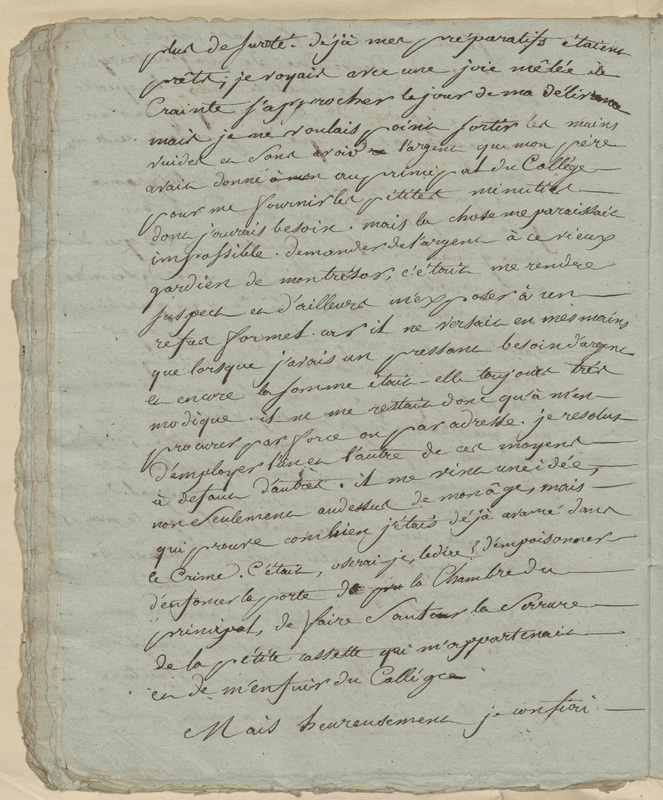 plus de sureté. déjà mes préparatifs étaient
prêts; je voyais avec une joie mêlée de
Crainte s'approcher le jour de ma délivrance
mais je ne voulais point sortir les mains
vuides et sans avoir l'argent que mon père
avait donné à mon au principal du Collége
pour me fournir les pétites minuties
dont j'aurais besoin. mais la chose me paraissait
impossible. demander de l'argent à ce vieux
gardien de mon trésor, c'était me rendre
suspect et d'ailleurs m'exposer à un
refus formel. car il ne versait en mes mains
que lorsque j'avais un pressant besoin d'argent
et encore la somme était-elle toujours très
modique. il ne me restait donc qu'à m'en
procurer par force ou par adresse. je resolus
d'employer l'un et l'autre de ces moyens
à defaut d'autres. il me vint une idée,
non seulement audessus de mon âge, mais
qui prouve combien j'étais déjà avancé dans
le Crime. C'était, oserai-je, le dire? d'empoisonner
d'enfoncer la porte de la Chambre du
principal, de faire sauter la Serrure
de la pétite cassette qui m'appartenait
et de m'enfuir du Collége
Mais heureusement je confiai